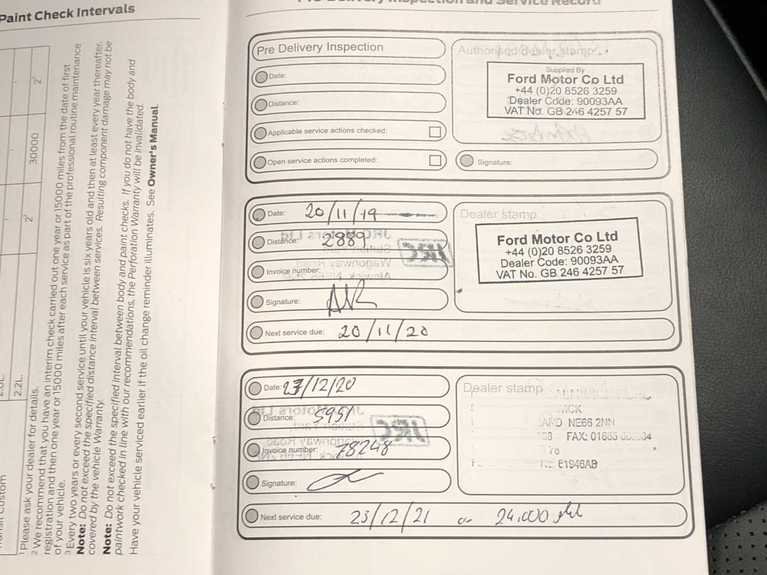 Paint Check Intervals
Pre Delivery Inspection and Service Record
30000
2.2L
1 Please ask your dealer for details.
2 We recommend that you have an interim check carried out one year or 15000 miles from the date of first
registration and then one year or 15000 miles after each service as part of the professional routine maintenance
of your vehicle.
3 Every two years or every second service until your vehicle is six years old and then at least every year thereafter.
Note: Do not exceed the specified distance interval between services. Resulting component damage may not be
covered by the vehicle Warranty.
Note: Do not exceed the specified interval between body and paint checks. If you do not have the body and
paintwork checked in line with our recommendations, the Perforation Warranty will be invalidated.
Have your vehicle serviced earlier if the oil change reminder illuminates. See Owner's Manual.
Pre Delivery Inspection
Date:
Distance:
Applicable service actions checked:
Open service actions completed:
Authorised dealer stamp:
Supplied By
Ford Motor Co Ltd
+44 (0)20 8526 3259
Dealer Code: 90093AA
VAT No. GB 246 4257 57
Signature:
Date: 20/11/19
Distance: 2889
Invoice number:
Signature:
Next service due: 20/11/20
Dealer stamp
Ford Motor Co Ltd
+44 (0)20 8526 3259
Dealer Code: 90093AA
VAT No. GB 246 4257 57
Date: 23/12/20
Distance: 5951
Invoice number: 78248
Signature:
Next service due: 23/12/21 or 24,000
Dealer stamp
NE66 2NN
FAX: 01665
61946AB